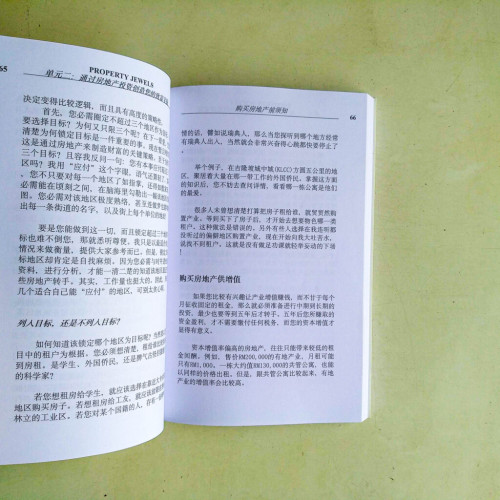 65
PROPERTY JEWELS
单元二：通过房地产投资创造您的财富王国
决定变得比较逻辑，而且具有高度的策略性。
首先，您必需确定不超过三个地区作为
要选择目标？为何又只限三个呢？在下一章，
清楚为何锁定目标是一件重要的事，现在您
这是通过房地产来制造财富的关键策略。至于
三个目标？且容我反问一句：您有本事应付
区吗？我用“应付”这个字眼，语气还算
，您不只要对每一个地区了如指掌，还得
必需能在顷刻之间，在脑海里勾勒出每个
图。您必需对该地区极度熟络，甚至连
出每一条街道的名字，以及街上每个单位的
要是您能做到这一切，而且锁定超过三个
标也难不倒您，那就悉听尊便。我只是以
情况来做衡量，提供大家参考而已。但是，
标地区却肯定是自找麻烦。因为您必需为
资料，进行分析，才能一清二楚的知道该
些房地产转手。其实，工作量也挺大的，
几个适合自己能“应付”的地区，可别太贪心
列入目标，还是不列入目标？
如何知道该锁定哪个地区为目标呢？当然
目中的租户为根据。您必须想清楚，租给
到房租。是学生、外国侨民，还是脾气古怪的
的科学家？
若您想租房给学生，就应该选择在靠近
地区购买房子。若想租房给工友，就应该
林立的工业区。若您对某个国籍的人，存有
购买房地产前须知
66
情的话，譬如说瑞典人，那么当您探听到哪个地方经常
有瑞典人出入，当然就会非常兴奋得心痴邪佞停止了
！
举个例子，在吉隆坡城中城(KLCC)方圆五公里的地
区，聚居着大量在那一带工作的外国侨民。掌握这方面
的知识后，您不妨去查问详情，看看哪一栋公寓是他们
的最爱。
很多人未曾想清楚打算把房子租给谁，就贸贸然购
置产业，等到买下了房子后，才开始去想要物色哪一类
租户。这种做法是错误的。另外有些人选择在我连听都
没听过的偏僻地区购置产业，现在开始向我大吐苦水，
说找不到租户。这就是没有做足功课就轻举妄动的下场
！
购买房地产供增值
如果您比较有兴趣让产业增值赚钱，而不甘于每个
月征收固定的租金，那么就必须准备进行中期到长期的
投资，最少也要等到五年后才转手。五年后您所赚取的
资金盈利，才不需要缴付任何税务，而您的资本增值才
显得有意义。
资本增值率偏高的房地产，往往只能带来较低的租
金回酬。例如，售价RM200,000的有地产业，月租可能
只有RM1,000。一栋大约值RM130,000的共管公寓，也能
以同样的价格出租。但是，跟共管公寓比较起来，有地
产业的增值率会比较高。